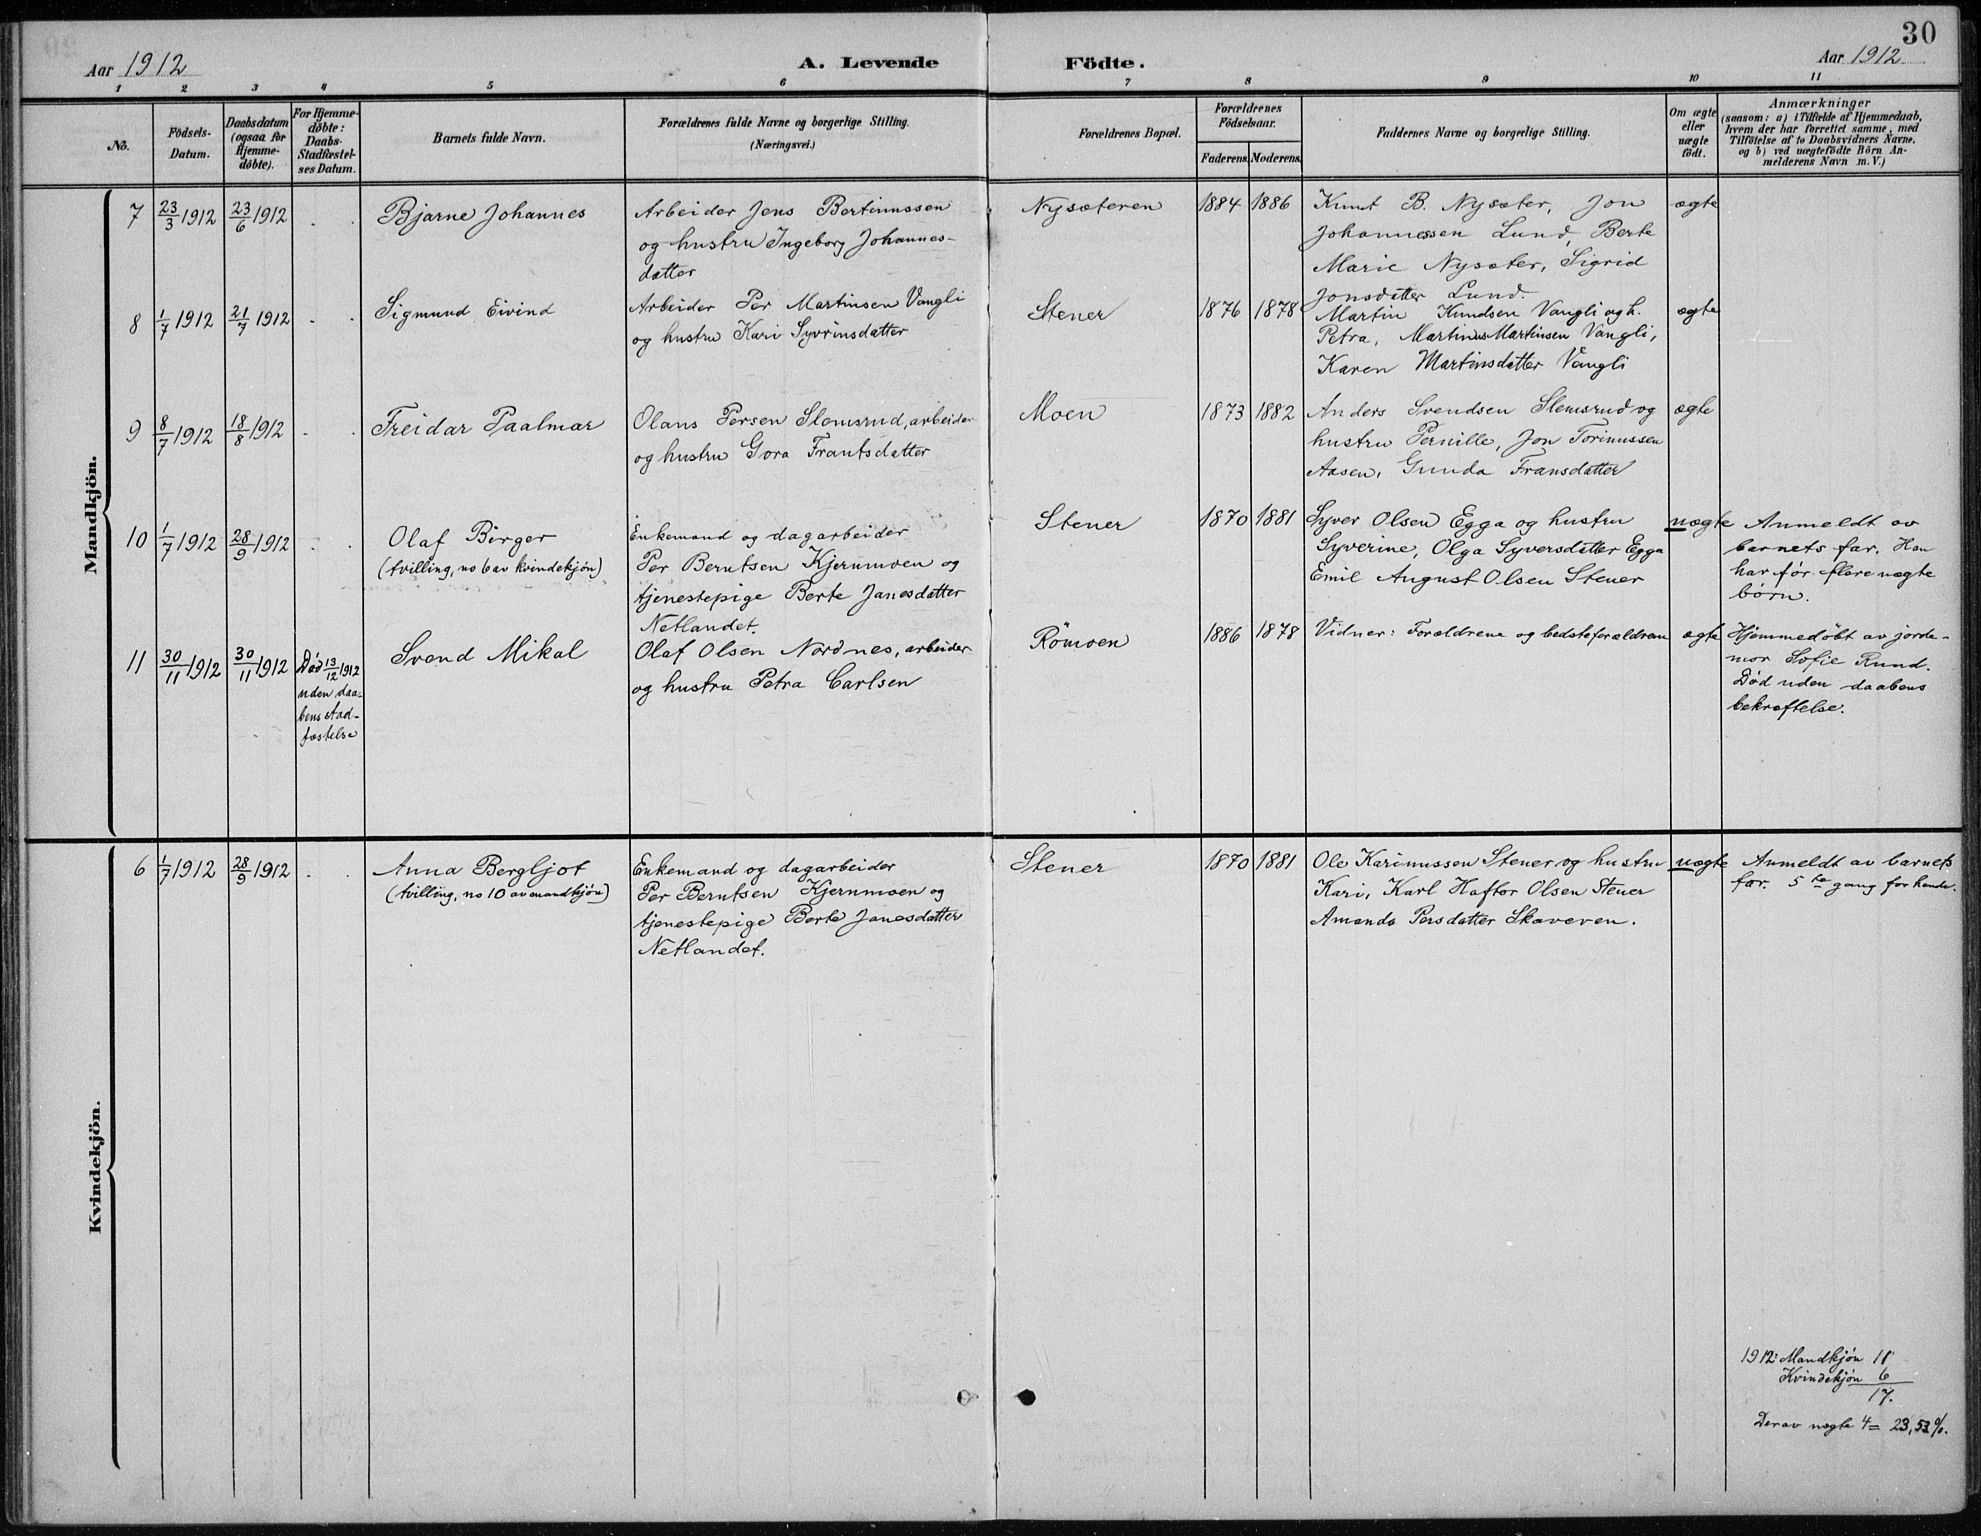 30
Aar 1912
A. Levende Födte.
Aar 1912
1 2 3 4 5 6 7 8 9 10 11
No.
Födsels-
Datum.
Daabsdatum
(ogsaa for
Hjemme-
döbte).
For Hjemme-
döbte:
Daabs-
Stadfæstel-
ses Datum.
Barnets fulde Navn.
Forældrenes fulde Navne og borgerlige Stilling.
(Næringsvei.)
Forældrenes Bopæl.
Forældrenes
Födselsaar.
Faderens. Moderens.
Faddernes Navne og borgerlige Stilling.
Om ægte
eller
uægte
födt.
Anmærkninger
(saasom: a) i Tilfælde af Hjemmedaab,
hvem der har forrettet samme, med
Tilföielse af to Daabsvidners Navne,
og b) ved uægtefödte Börn An-
melderens Navn m. V.)
Mandkjön.
7 23/3 1912 23/6 1912 Bjarne Johannes
Arbeider Jens Bertinussen
og hustru Ingeborg Johannes-
datter
Nysæteren 1884 1886
Knut B. Nysæter, Jon
Johannessen Lund, Berte
Marie Nysæter, Sigrid
Jonsdatter Lund.
ægte
8 1/7 1912 21/7 1912 Sigmund Eivind
Arbeider Per Martinsen Vangli
og hustru Kari Syvrinsdatter
Stener 1876 1878
Martin Knudsen Vangli og h.
Petra, Martinus Martinsen Vangli,
Karen Martinsdatter Vangli
ægte
9 8/7 1912 18/8 1912 Freidar Paalmar
Olaus Persen Slemsrud, arbeider
og hustru Gora Frantsdatter
Moen 1873 1882
Anders Svendsen Slemsrud og
hustru Pernille, Jon Torinussen
Aasen, Gunda Fransdatter
ægte
10 1/7 1912 28/9 1912 Olaf Birger
(tvilling, no 6 av kvindekjön)
Enkemand og dagarbeider
Per Berntsen Kjernmoen og
tjenestepige Berte Janesdatter
Netlandet.
Stener 1870 1881
Syver Olsen Egga og hustru
Syverine, Olga Syversdatter Egga
Emil August Olsen Stener
uægte
Anmeldt av
barnets far. Han
har før flere uægte
børn.
11 30/11 1912 30/11 1912
Død 13/12 1912
uden daa-
bens stad-
fæstelse
Svend Mikal
Olaf Olsen Nordnes, arbeider
og hustru Petra Carlsen
Römoen 1886 1878
Vidner: Forældrene og bedsteforældrene
ægte
Hjemmedøbt av jorde-
mor Sofie Rund.
Død uden daabens
bekræftelse.
Kvindekjön.
6 1/7 1912 28/9 1912 Anna Bergljot
(tvilling, no 10 av mandkjön)
Enkemand og dagarbeider
Per Berntsen Kjernmoen og
tjenestepige Berte Janesdatter
Netlandet.
Stener 1870 1881
Ole Karinussen Stener og hustru
Kari, Karl Haftor Olsen Stener
Amanda Persdatter Skaveren.
uægte
Anmeldt av barnets
far. 5te gang for hende.
1912: Mandkjön 11
Kvindekjön 6
17.
Derav uægte 4 = 23,53 %.